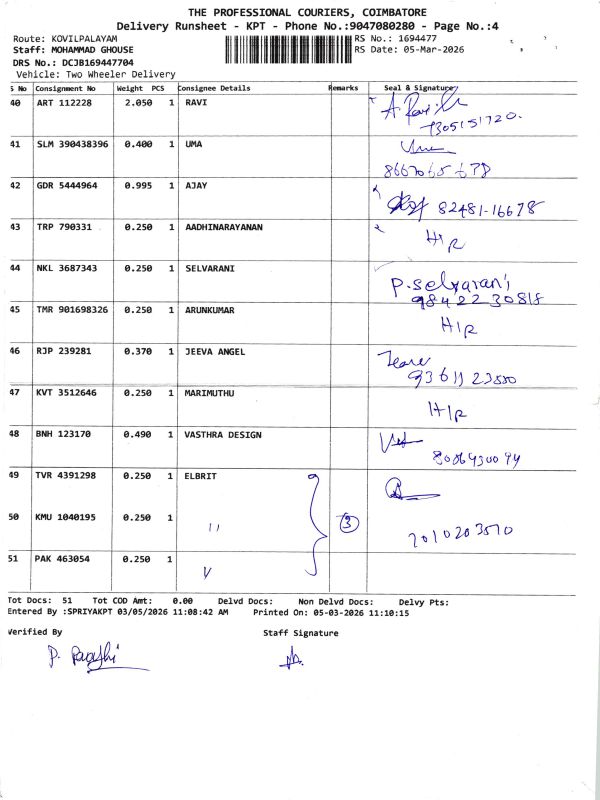 THE PROFESSIONAL COURIERS, COIMBATORE
Delivery Runsheet - KPT - Phone No.:9047080280 - Page No.:4
Route: KOVILPALAYAM RS No.: 1694477
Staff: MOHAMMAD GHOUSE RS Date: 05-Mar-2026
DRS No.: DCJB169447704
Vehicle: Two Wheeler Delivery
S No Consignment No Weight PCS Consignee Details Remarks Seal & Signature
40 ART 112228 2.050 1 RAVI A. Ravi
7305151720.
41 SLM 390438396 0.400 1 UMA Uma
42 GDR 5444964 0.995 1 AJAY 82481-16678
43 TRP 790331 0.250 1 AADHINARAYANAN H/R
44 NKL 3687343 0.250 1 SELVARANI P. Selvarani
9842230818
45 TMR 901698326 0.250 1 ARUNKUMAR H/R
46 RJP 239281 0.370 1 JEEVA ANGEL
47 KVT 3512646 0.250 1 MARIMUTHU H/R
48 BNH 123170 0.490 1 VASTHRA DESIGN
49 TVR 4391298 0.250 1 ELBRIT
50 KMU 1040195 0.250 1 11 3
51 PAK 463054 0.250 1
Tot Docs: 51 Tot COD Amt: 0.00 Delvd Docs: Non Delvd Docs: Delvy Pts:
Entered By :SPRIYAKPT 03/05/2026 11:08:42 AM Printed On: 05-03-2026 11:10:15
Verified By Staff Signature